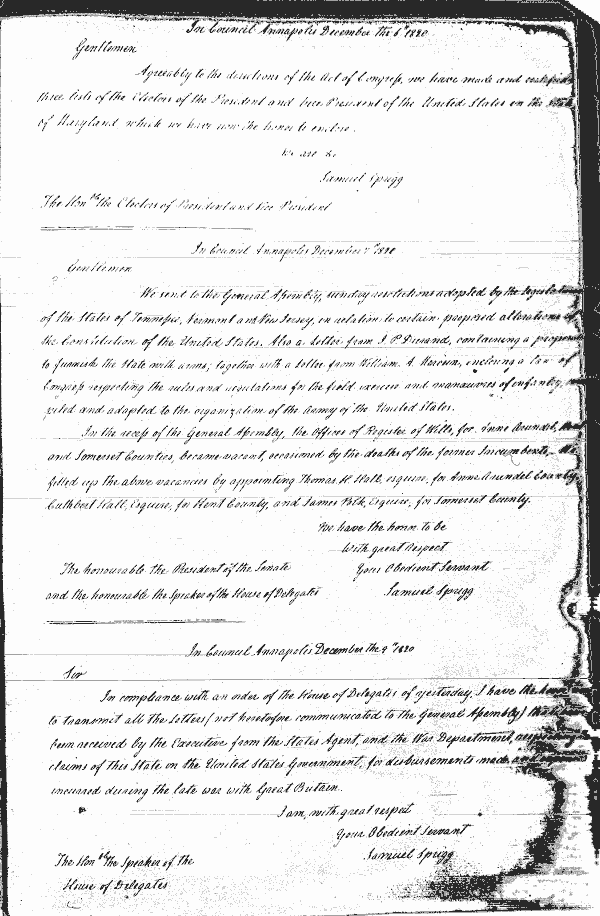 In Council Annapolis December the 6th 1820
Gentlemen
Agreeably to the directions of the Act of Congress, we have made and certified
three lists of the Electors of the President and Vice President of the United States on the
of Maryland, which we have now the honor to enclose.
We are &c
Samuel Sprigg
The Honble the Electors of President and Vice President
In Council Annapolis December 7th 1820
Gentlemen
We send to the General Assembly, sunday resolutions adopted by the Legislatures
of the States of Tennessee, Vermont and New Jersey, on relation to certain proposed alterations of
the Constitution of the United States. Also a letter from J. P. Durand, containing a proposal
to furnish the State with arms; together with a letter from William A. enclosing a Law of
Congress respecting the rules and regulations for the field exercise and manœuvres of infantry,
vised and adapted to the organization of the Army of the United States.
In the recess of the General Assembly, the Offices of Register of Wills, for Anne Arundel,
and Somerset Counties, became vacant, occasioned by the deaths of the former Incumbents,
filled up the above vacancies by appointing Thomas H Hall, esquire, for Anne Arundel County,
Cuthbert Hall, Esquire, for Kent County, and James Polk, Esquire, for Somerset County.
We have the honor to be
With great Respect
Your Obedient Servant
Samuel Sprigg
The honourable the President of the Senate
and the honourable the Speaker of the House of Delegates
In Council Annapolis December the 9th 1820
Sir
In compliance with an order of the House of Delegates of yesterday, I have the honor
to transmit all the letters (not heretofore communicated to the General Assembly)
been received by the Executive from the States Agent, and the War Department,
claims of this State on the United States Government, for disbursements made and
incurred during the late war with Great Britain.
I am, with great respect
Your Obedient Servant
Samuel Sprigg
The Honble the Speaker of the
House of Delegates